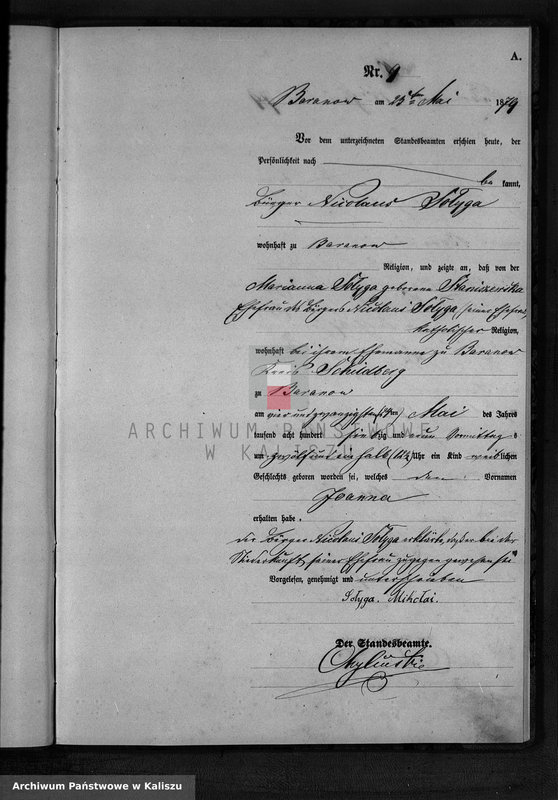 A.
Nr. 9
Baranow am 25ten Mai 1879
Vor dem unterzeichneten Standesbeamten erschien heute, der
Persönlichkeit nach
be kannt,
Bürger Nicolaus Sołyga
wohnhaft zu Baranow
Religion, und zeigte an, daß von der
Marianna Sołyga geborene Staniszewska
Ehefrau des Bürgers Nicolaus Sołyga, seiner Ehefrau,
katholischer Religion,
wohnhaft bei ihrem Ehemanne zu Baranow
Kreis Schildberg
zu Baranow
am vier und zwanzigsten (24ten) Mai des Jahres
tausend acht hundert siebzig und neun Vormittags
um zwölf und ein halb (12½) Uhr ein Kind weiblichen
Geschlechts geboren worden sei, welches den Vornamen
Joanna
erhalten habe.
der Bürger Nicolaus Sołyga erklärte, daß er bei der
Niederkunft seiner Ehefrau zugegen gewesen sei
Vorgelesen, genehmigt und unterschrieben
Sołyga. Mikołai.
Der Standesbeamte.
ARCHIWUM PAŃSTWOWE
W KALISZU
Archiwum Państwowe w Kaliszu